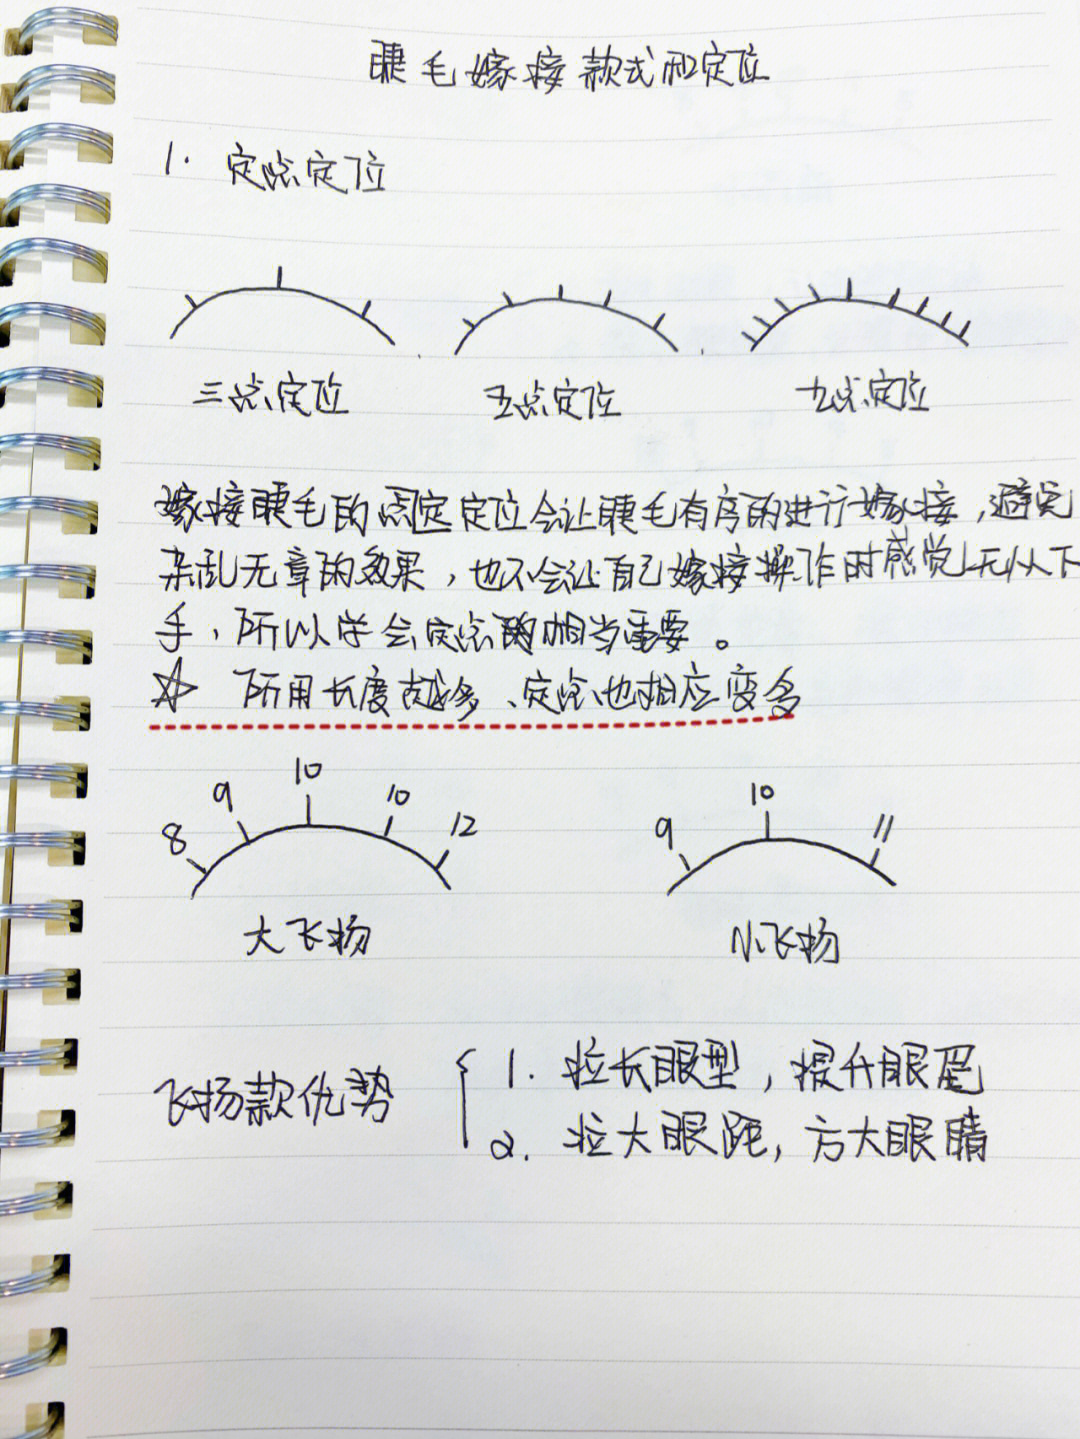 睫毛嫁接款式和定位
1. 定点定位
三点定位 五点定位 九点定位
嫁接睫毛的点定定位会让睫毛有序的进行嫁接,避免
杂乱无章的效果,也不会让自己嫁接操作时感觉无从下
手,所以学会定点的相当重要。
☆ 所用长度越多、定点也相应变多
8 9 10 10 12 9 10 11
大飞扬 小飞扬
飞扬款优势
1. 拉长眼型,提升眼尾
2. 拉大眼距,方大眼睛